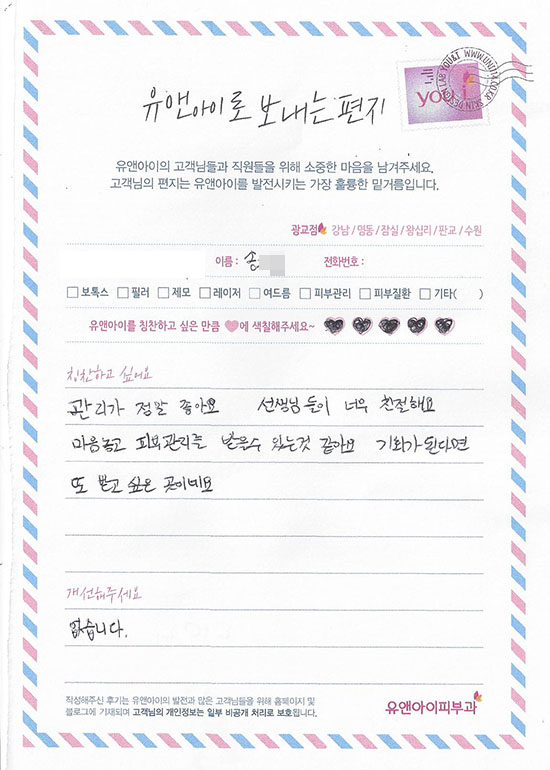 WWW.UNI114.CO.KR SKIN DESIGN LAB YOU&I
you i
유앤아이로 보내는 편지
유앤아이의 고객님들과 직원들을 위해 소중한 마음을 남겨주세요.
고객님의 편지는 유앤아이를 발전시키는 가장 훌륭한 밑거름입니다.
광교점 강남 / 명동 / 잠실 / 왕십리 / 판교 / 수원
이름 : 송 전화번호 :
보톡스 필러 제모 레이저 여드름 피부관리 피부질환 기타( )
유앤아이를 칭찬하고 싶은 만큼 에 색칠해주세요~
칭찬하고 싶어요
관리가 정말 좋아요 선생님들이 너무 친절해요
마음놓고 피부관리를 받을수 있는것 같아요 기회가 된다면
또 받고 싶은 곳이네요
개선해주세요
없습니다.
작성해주신 후기는 유앤아이의 발전과 많은 고객님들을 위해 홈페이지 및
블로그에 기재되며 고객님의 개인정보는 일부 비공개 처리로 보호됩니다.
유앤아이피부과